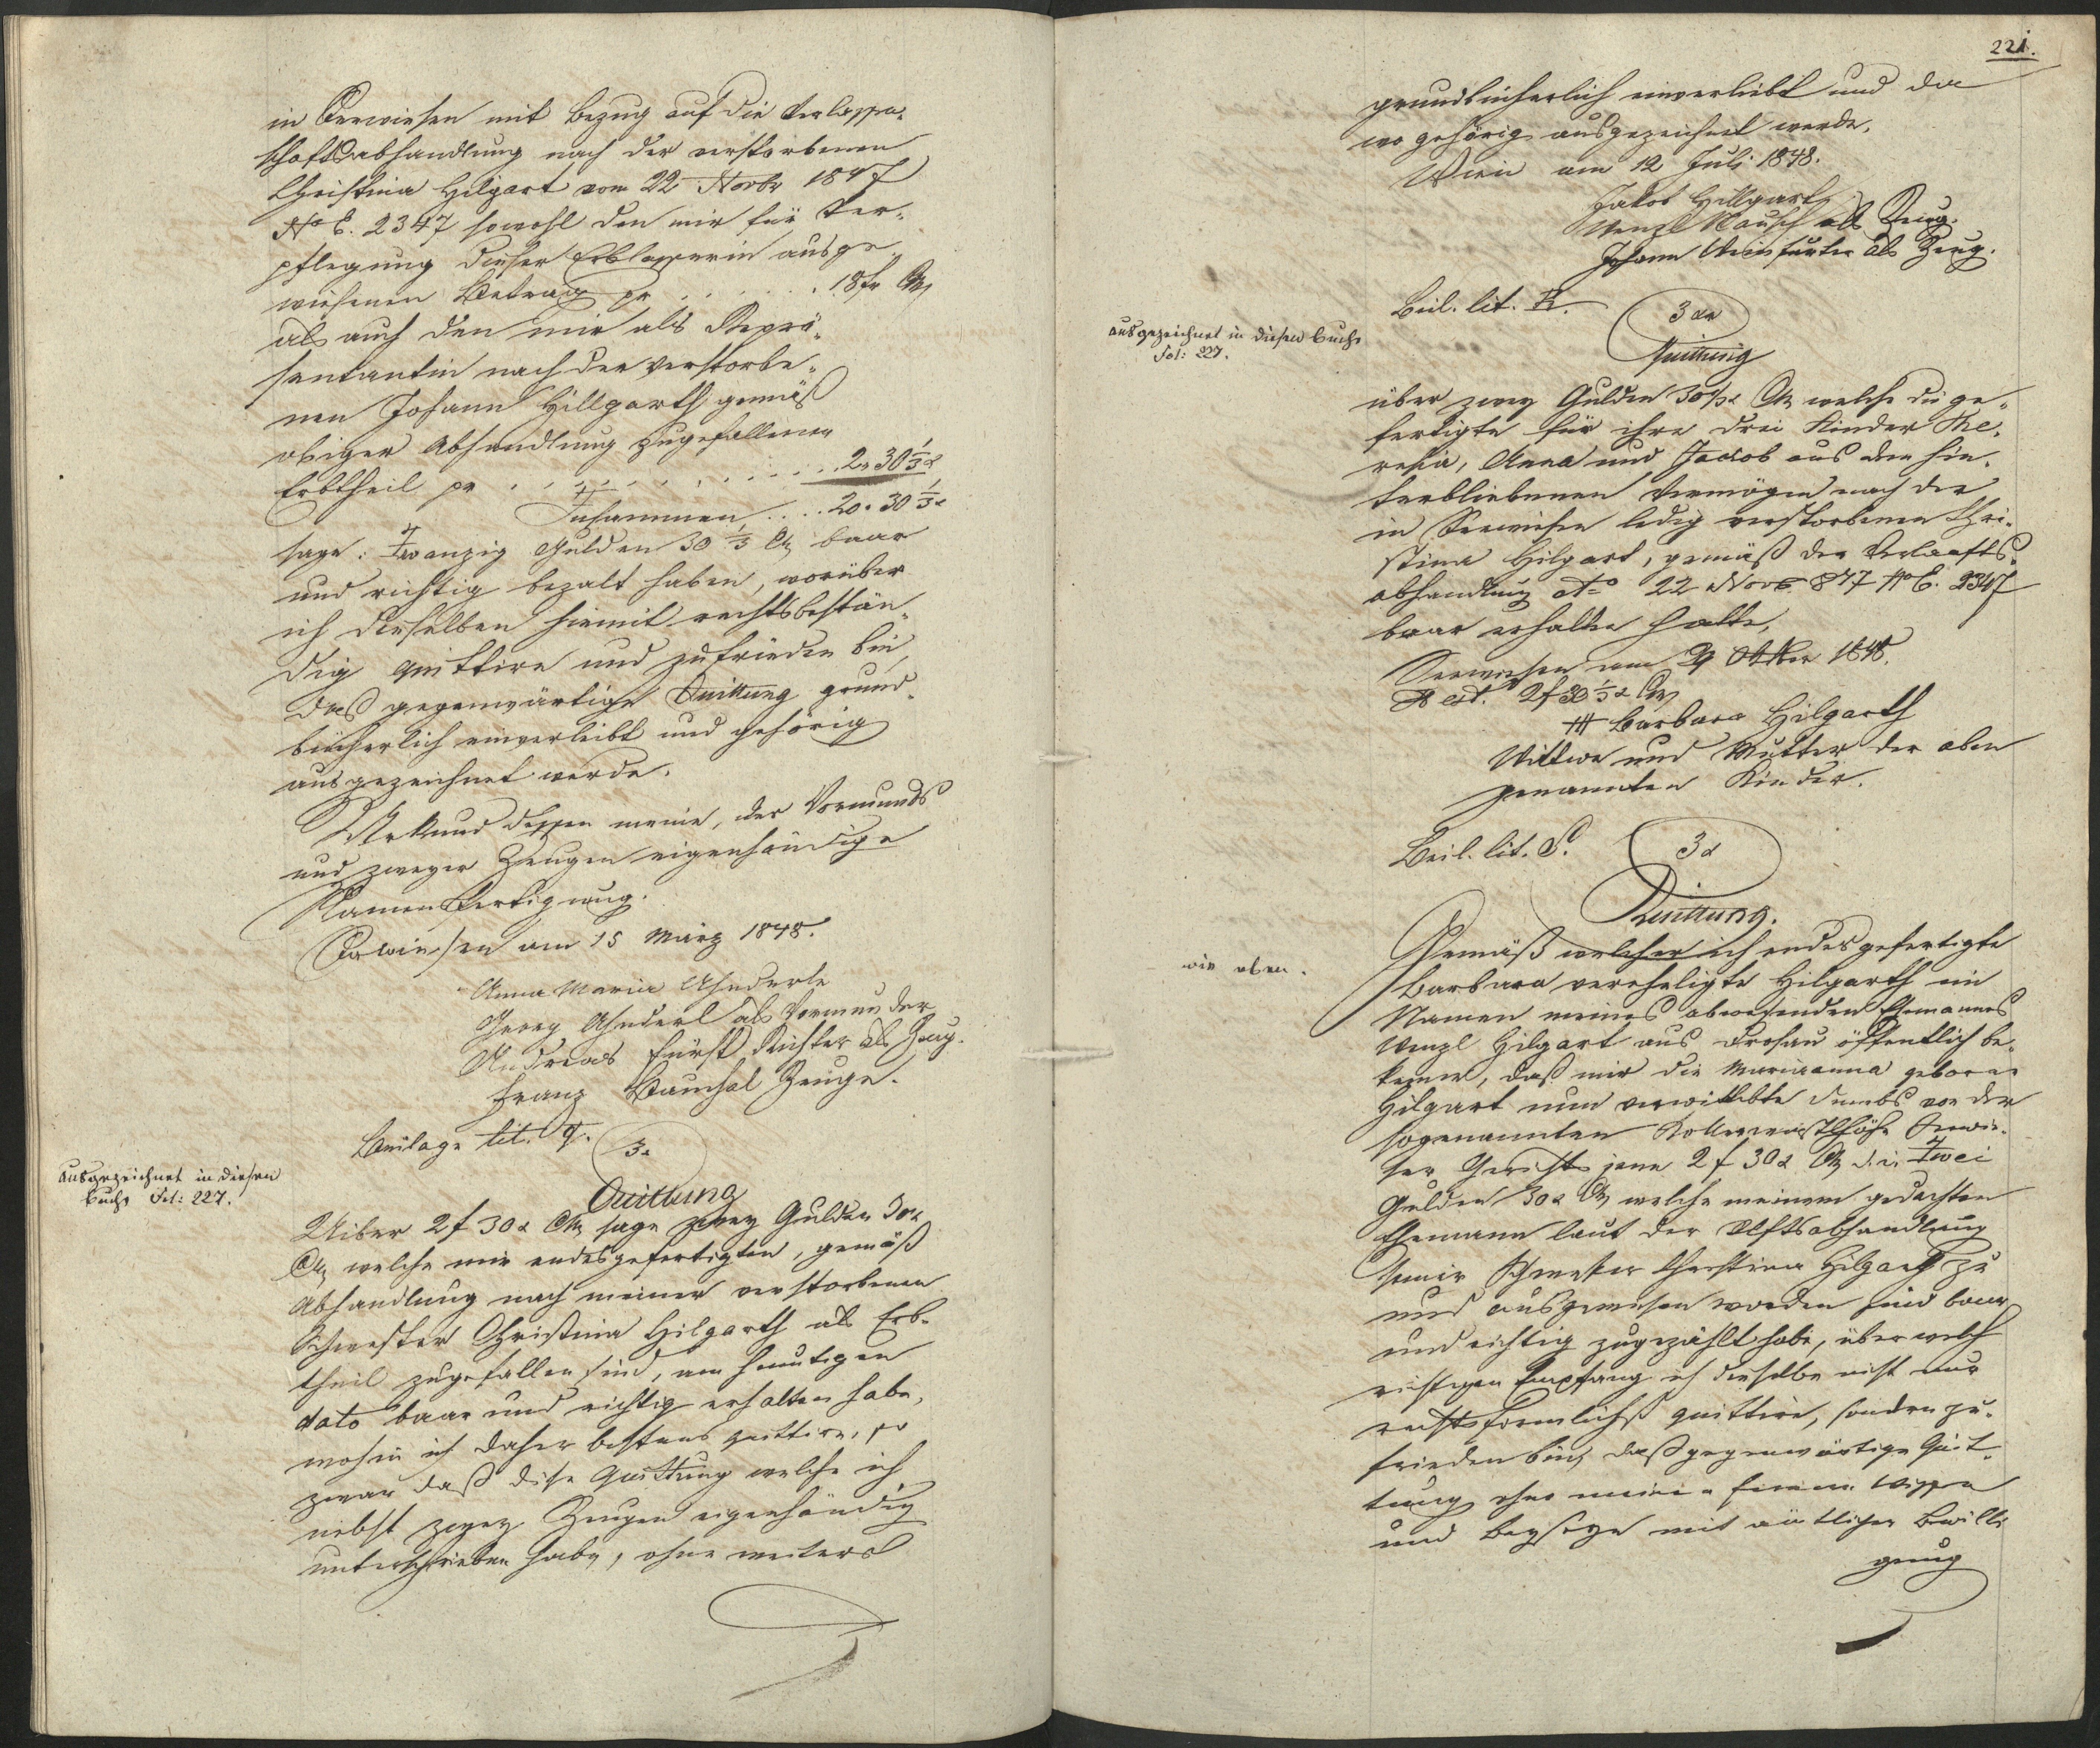 in Seewiesen mit Bezug auf die Verlassen-
schaftsabhandlung nach der verstorbenen
Christina Hilgart vom 22 Novbr 1847
No E. 2347 sowohl den mir für Ver-
pflegung dieser Erblasserin ausge-
wiesenen Betrag pr . . . . . . 18 fr CMz
als auch den mir als Reprä-
sentantin nach der verstorbe-
nen Johann Hillgarth gemäß
obiger Abhandlung zugefallenen
Erbtheil pr . . . . . . . . . . . 2 „ 30 1/3 x
Zusammen . . . . 20 . 30 1/3 x
sage: Zwanzig Gulden 30 1/3 CMz baar
und richtig bezalt haben, worüber
ich dieselben hiemit rechtsbestän-
dig quittire und zufrieden bin,
daß gegenwärtige Quittung grund-
bücherlich einverleibt und gehörig
ausgezeichnet werde.
Urkund dessen meine, des Vormunds
und zweyer Zeugen eigenhändige
Namensfertigung.
Seewiesen am 15 März 1848.
Anna Maria
Georg als Vormunder
Andreas Fürst Richter als Zeug.
Franz Zeuge.
Beilage lit. Q.
3 x
ausgezeichnet in diesen
Buche Fol: 227.
Quittung
Uiber 2 f 30 x CMz sage zwey Gulden 30 x
CMz welche mir endesgefertigten, gemäß
Abhandlung nach meiner verstorbenen
Schwester Christina Hilgarth als Erb-
theil zugefallen sind, am heutigen
dato baar und richtig erhalten habe,
wohin ich daher bestens quittire, so
zwar daß diese Quittung welche ich
nebst zweyen Zeugen eigenhändig
unterschrieben habe, ohne weiters
221.
grundbücherlich einverleibt und da
wo gehörig ausgezeichnet werde.
Wien am 12 Juli 1848.
Jakob Hillgart
Wenzl Nausch als Zeug.
Johann Weinfurter als Zeug.
Beil. lit. R.
3 xr
ausgezeichnet in diesen Buche
Fol: 227.
Quittung
über zwey Gulden 30 1/3 x CMz welche die ge-
fertigte für ihre drei Kinder The-
resia, Anna und Jacob aus dem hin-
terbliebenen Vermögen nach der
in Seewiesen ledig verstorbenen Chri-
stina Hilgart, gemäß der Verlaafts-
abhandlung dto 22 Novb 847 No E. 2347
baar erhalten hatte,
Seewiesen am 29 Oktber 1848.
est. 2 f 30 1/3 x CMz
+++ Barbara Hilgarth
Wittwe und Mutter der oben
genannten Kinder.
Beil. lit. S.
3 x
Quittung.
wie oben.
Gemäß welcher ich endesgefertigte
Barbara vereheligte Hilgarth im
Namen meines abwesenden Ehemannes
Wenzl Hilgart aus Drosau öffentlich be-
kenne, daß mir die Marianna geborne
Hilgart nun verwittibte von der
sogenannten Seewie-
ser Gerichts jene 2 f 30 x CMz d. i. Zwei
Gulden 30 x CMz welche meinem gedachten
Ehemann laut der Vlftsabhandlung
seiner Schwester Christina Hilgart zu
und ausgewiesen worden sind baar
und richtig zugezählt habe, über welch
richtigen Empfang ich dieselbe nicht nur
rechtsförmlichst quittire, sondern zu-
frieden bin, daß gegenwärtige Quit-
tung ohne meinen fernern Wissen
und Beyseyn mit ämtlicher Bewilli
gung